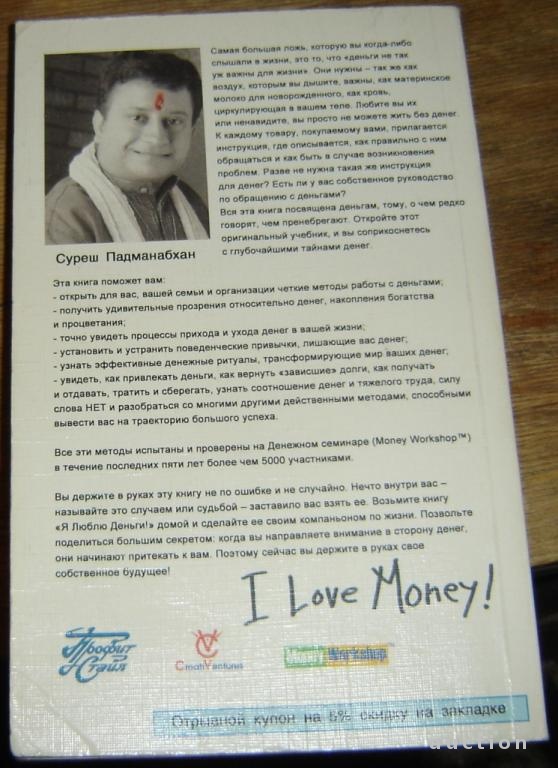 Самая большая ложь, которую вы когда-либо
слышали в жизни, это то, что «деньги не так
уж важны для жизни». Они нужны – так же как
воздух, которым вы дышите, важны, как материнское
молоко для новорожденного, как кровь,
циркулирующая в вашем теле. Любите вы их
или ненавидите, вы просто не можете жить без денег.
К каждому товару, покупаемому вами, прилагается
инструкция, где описывается, как правильно с ним
обращаться и как быть в случае возникновения
проблем. Разве не нужна такая же инструкция
для денег? Есть ли у вас собственное руководство
по обращению с деньгами?
Вся эта книга посвящена деньгам, тому, о чем редко
говорят, чем пренебрегают. Откройте этот
оригинальный учебник, и вы соприкоснетесь
с глубочайшими тайнами денег.
Суреш Падманабхан
Эта книга поможет вам:
- открыть для вас, вашей семьи и организации четкие методы работы с деньгами;
- получить удивительные прозрения относительно денег, накопления богатства
и процветания;
- точно увидеть процессы прихода и ухода денег в вашей жизни;
- установить и устранить поведенческие привычки, лишающие вас денег;
- узнать эффективные денежные ритуалы, трансформирующие мир ваших денег;
- увидеть, как привлекать деньги, как вернуть «зависшие» долги, как получать
и отдавать, тратить и сберегать, узнать соотношение денег и тяжелого труда, силу
слова НЕТ и разобраться со многими другими действенными методами, способными
вывести вас на траекторию большого успеха.
Все эти методы испытаны и проверены на Денежном семинаре (Money Workshop™)
в течение последних пяти лет более чем 5000 участниками.
Вы держите в руках эту книгу не по ошибке и не случайно. Нечто внутри вас –
называйте это случаем или судьбой – заставило вас взять ее. Возьмите книгу
«Я Люблю Деньги!» домой и сделайте ее своим компаньоном по жизни. Позвольте
поделиться большим секретом: когда вы направляете внимание в сторону денег,
они начинают притекать к вам. Поэтому сейчас вы держите в руках свое
собственное будущее!
I Love Money!
Профит Стайл
CreatiVentures
Money Workshop
Отрывной купон на 5% скидку на закладке
auction